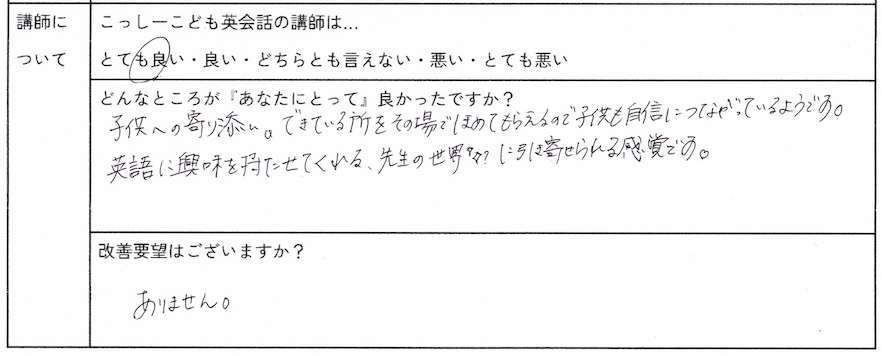 講師に
ついて
こっしーこども英会話の講師は…
とても良い・良い・どちらとも言えない・悪い・とても悪い
どんなところが『あなたにとって』良かったですか？
子供への寄り添い。できている所をその場でほめてもらえるので子供も自信につながっているようです。
英語に興味を持たせてくれる、先生の世界？に引き寄せられる感覚です。
改善要望はございますか？
ありません。